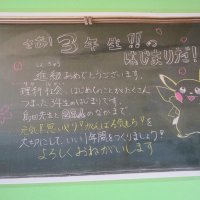 さあ！3年生!!の
はじまりだ！
しんきゅう
進級おめでとうございます。
理科、社会、はじめしのことがたくさん
つまった3年生のはじまりです。
島田先生と のなかまで
元気、思いやり、がんばる気もちを
大切にして、いい1年間をつくりましょう！
よろしくおねがいします